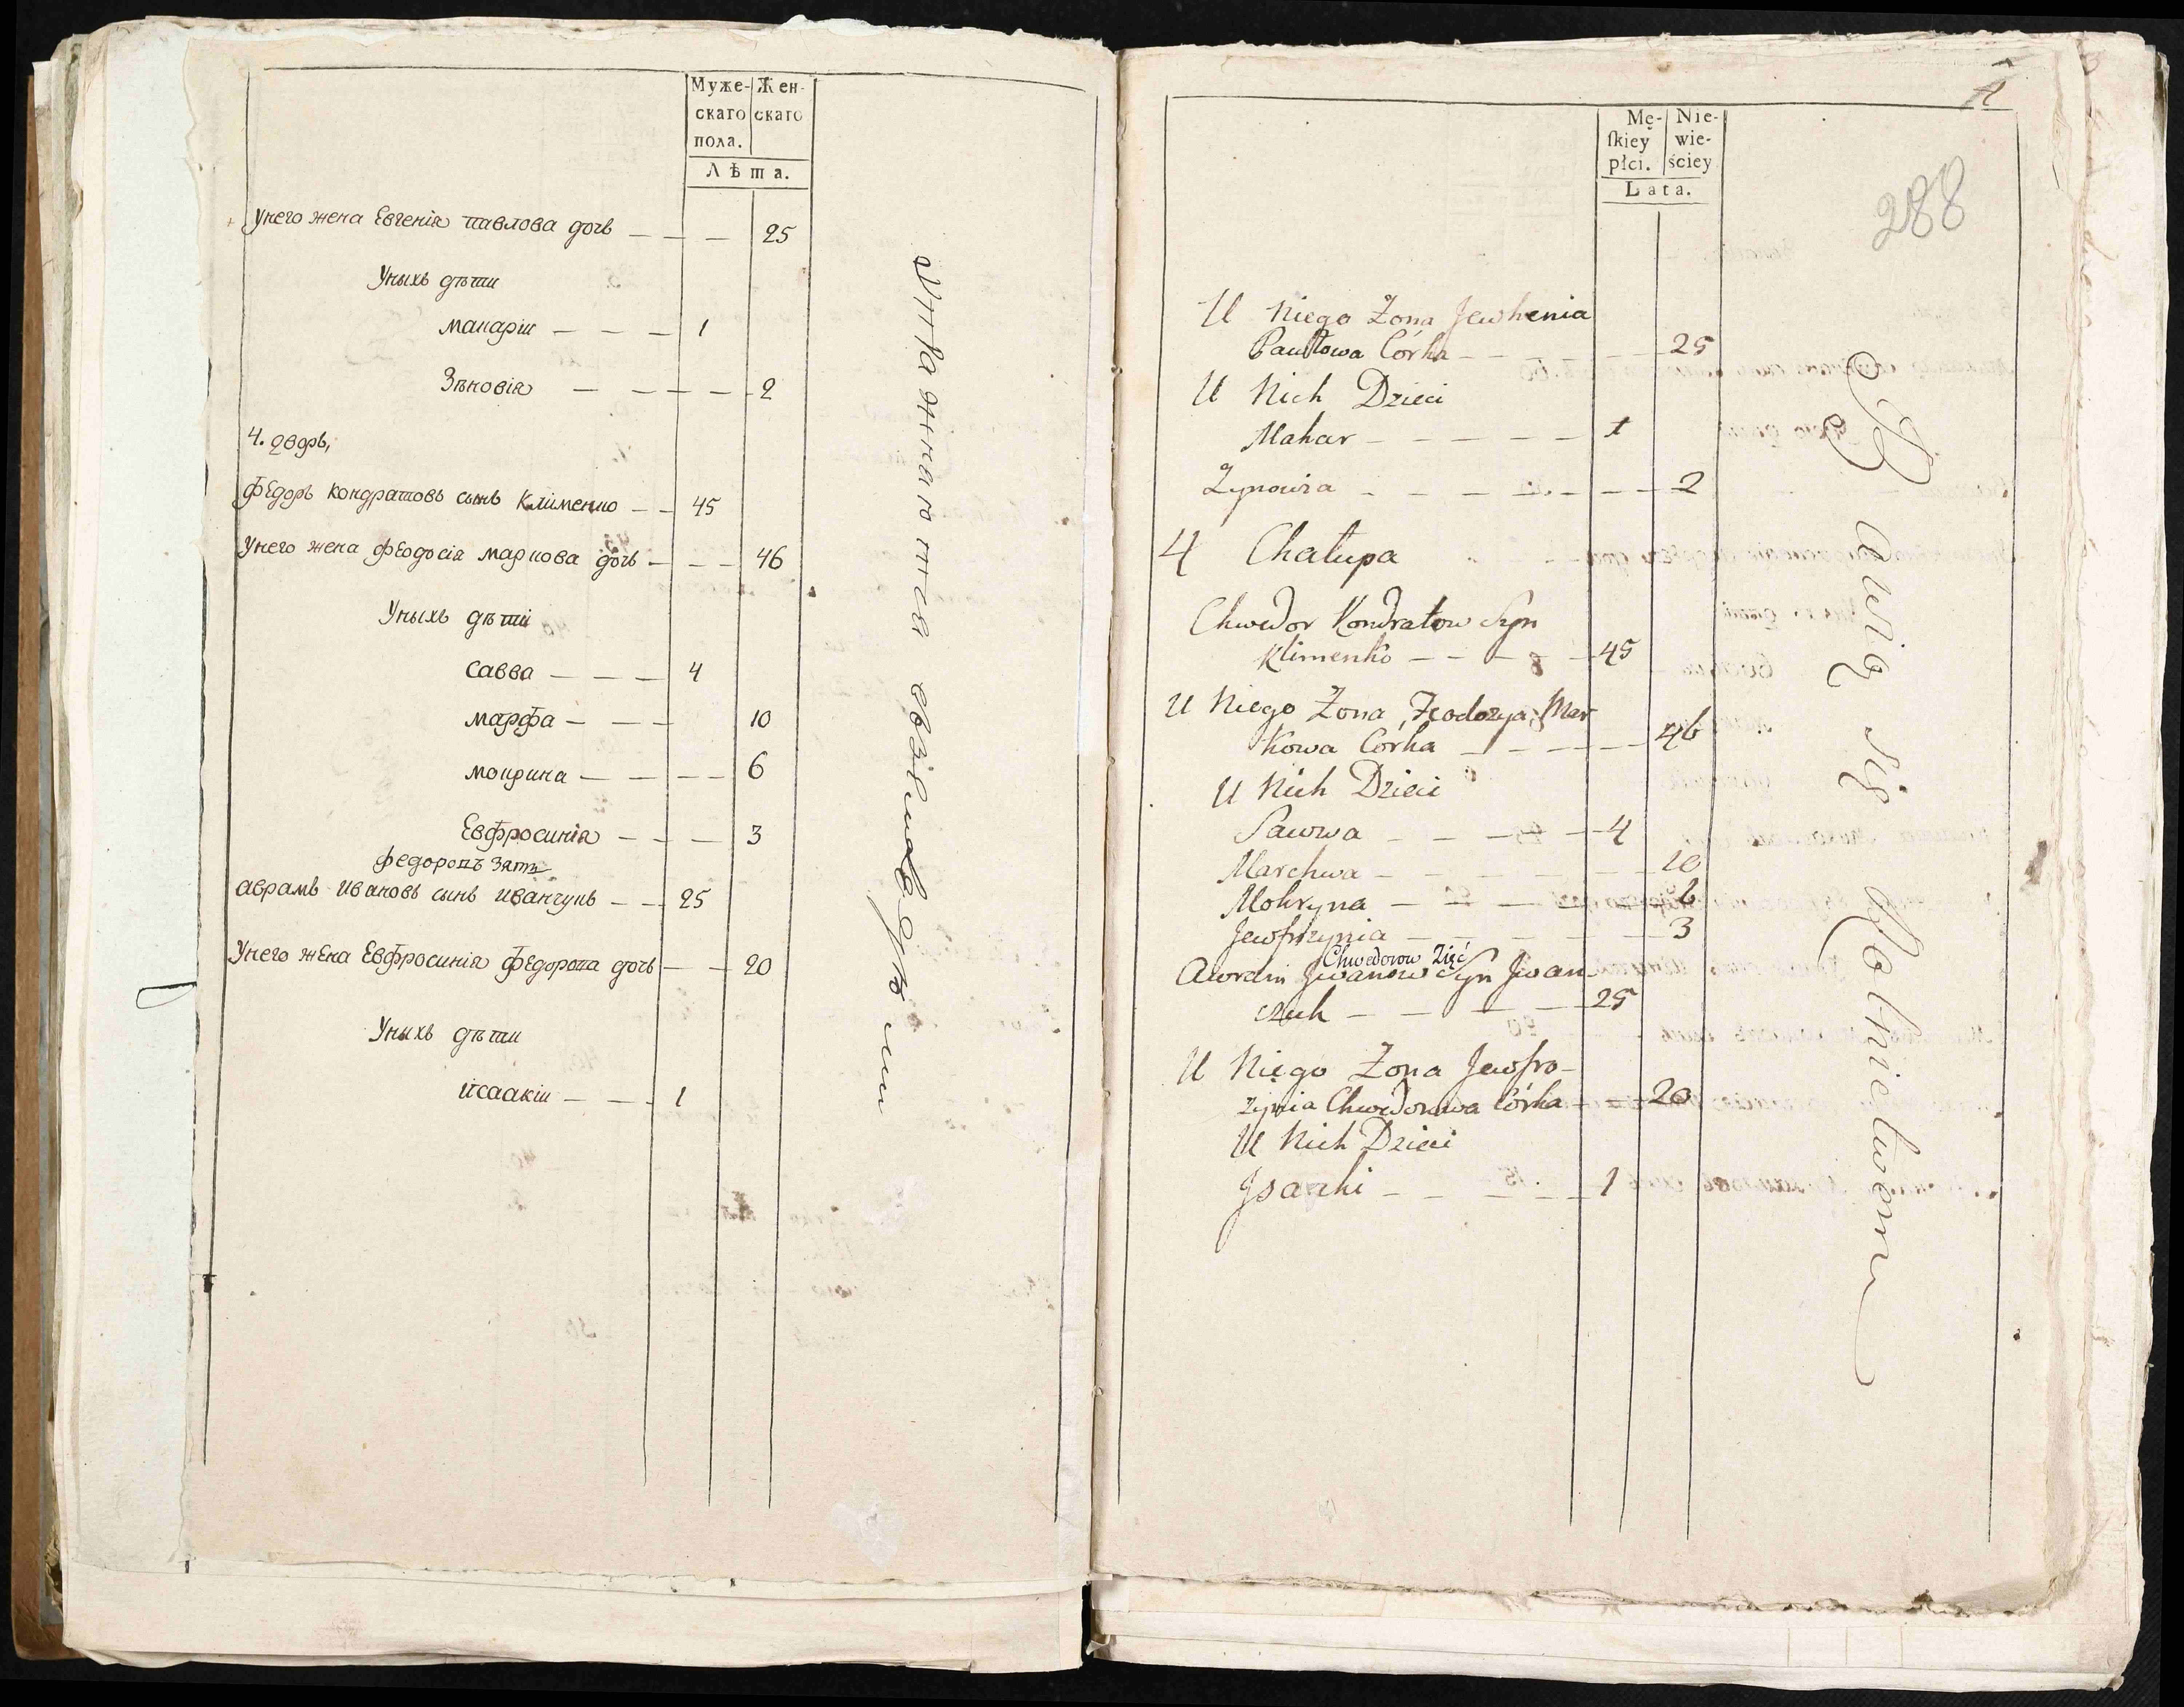 Муже-
скаго
пола.
Жен-
скаго
Лѣта.
Унего жена Евгенія павлова дочь — — — 25
Уныхъ дѣти
макаріи — — — 1
Зѣновія — — — — 2
4. дворъ,
Федоръ кондратовъ сынъ Клименко — — 45
Унего жена феодосія маркова дочь — — — 46
Уныхъ дѣти
савва — — — 4
марфа — — — 10
мокрина — — — — 6
Евфросинія — — — 3
федоровъ зать
аврамъ ивановъ сынъ иванчукъ — — 25
Унего жена Евфросинія федорова дочь — — 20
Уныхъ дѣти
исаакіи — — — 1
хлѣбопашествомъ
288
Mę-
ſkiey
płci.
Nie-
wie-
ściey
Lata.
U Niego Żona Jewhenia
Pawłowa Córka — — — — — 25
U Nich Dzieci
Makar — — — — — 1
Zynowia — — — — — — 2
4 Chałupa
Chwedor Kondratow Syn
Klimenko — — — — 45
U Niego Żona Feodozya Mar
kowa Córka — — — — — 46
U Nich Dzieci
Sawwa — — — — 4
Marchwa — — — — — 10
Mokryna — — — — — 6
Jewfrozynia — — — — — 3
Chwedorow Zięć
Awram Jwanow Syn Jwan
czuk — — — — — 25
U Niego Żona Jewfro-
zynia Chwedorowa Córka — — 20
U Nich Dzieci
Jsaaki — — — — 1
Bawią się Rolnictwem